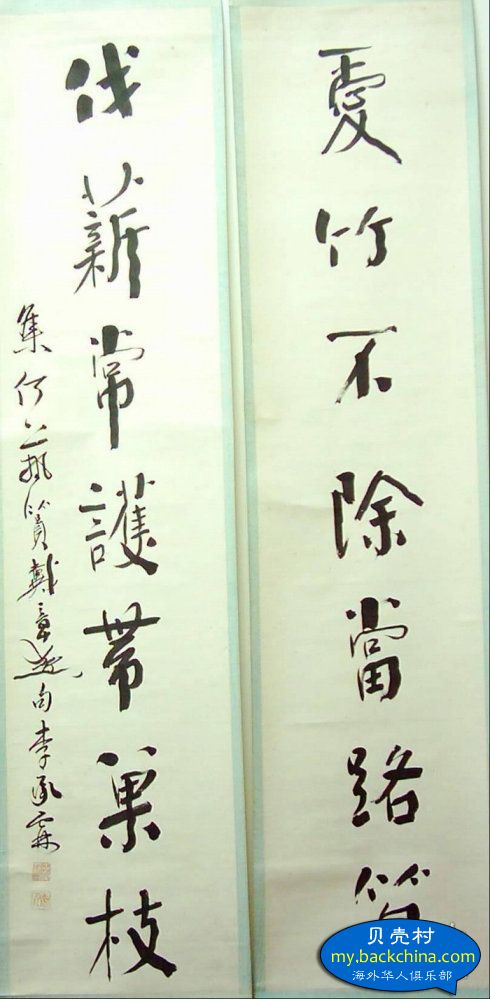 愛竹不除當路筍
伐薪常護帶巢枝
集 句李承霖
贝壳村
my.backchina.com
海外华人俱乐部